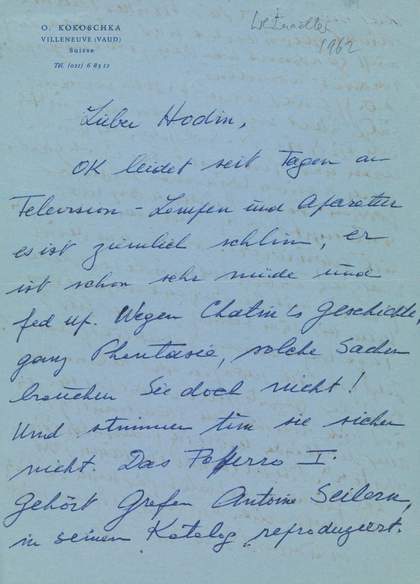 O. KOKOSCHKA
VILLENEUVE (VAUD)
Suisse
Tél. (021) 6 83 12
1962
Lieber Hodin,
OK leidet seit Tagen an
Television – Lampen und Aparatten
es ist ziemlich schlim, er
ist schon sehr müde und
fed up. Wegen Chatin's Geschichte
ganz Phantasie, solche Sachen
brauchen Sie doch nicht!
Und stimmen tun sie sicher
nicht. Das I.
gehört Grafen Antoine Seilern,
in seinen Katalog reproduziert.